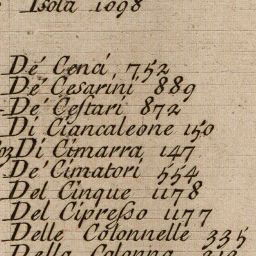 Isola 1098
De' Cenci, 752
De' Cesarini 889
De' Cestari 872
Di Ciancaleone 150
Di Cimarra 147
De' Cimatori 554
Del Cinque 1178
Del Cipresso 1177
Delle Colonnelle 335
Della Colonna